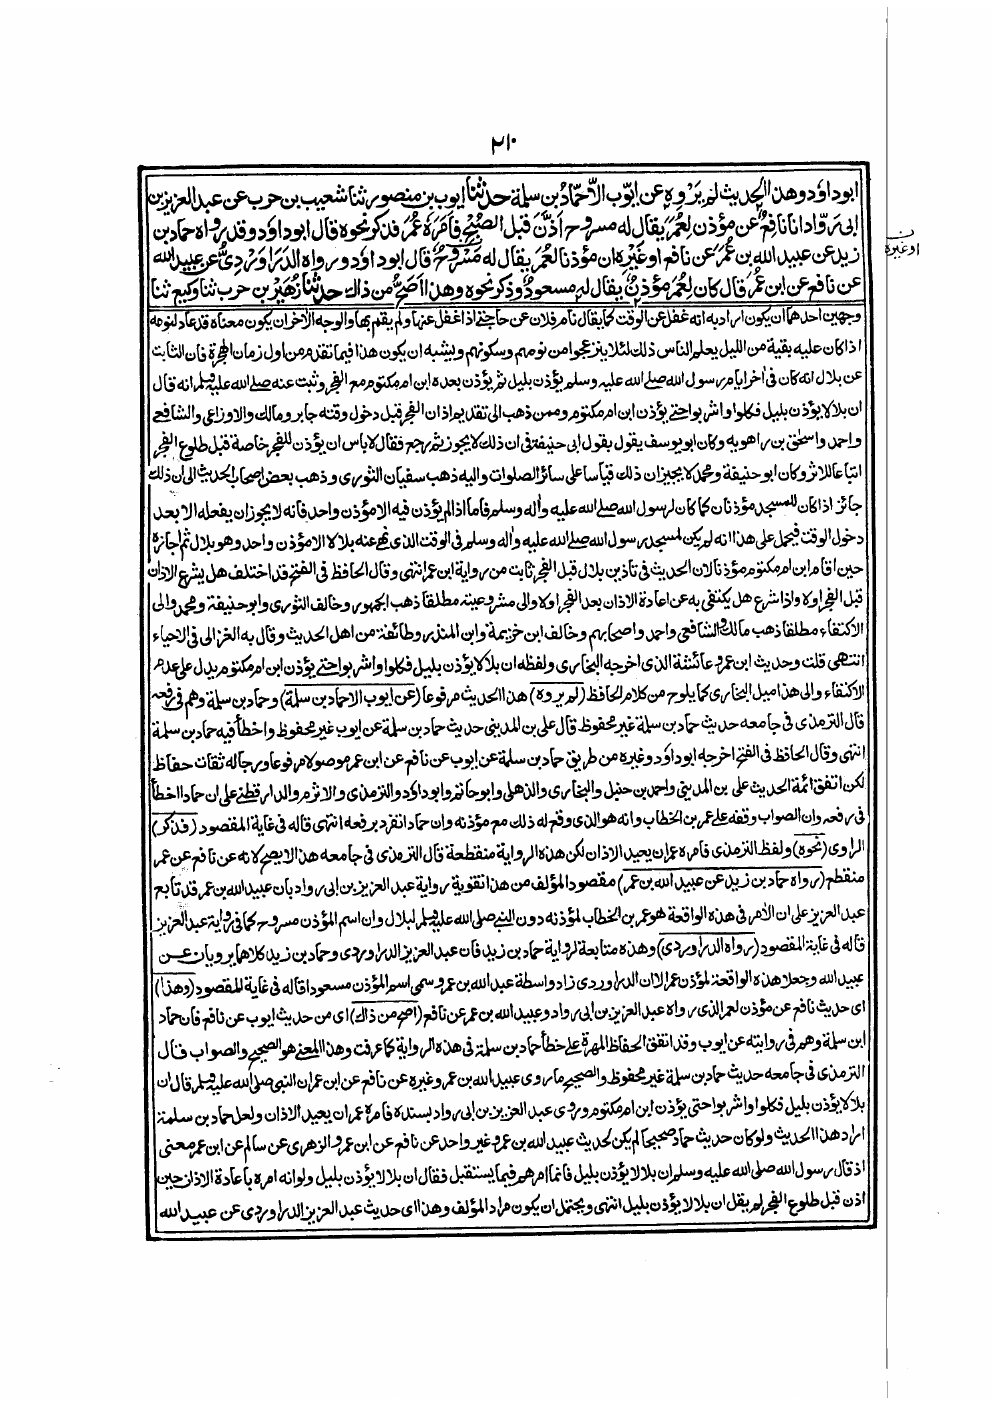 ٢١٠
ابوداؤد وهذا الحديث لم يَرْوِهِ عن ايّوب الا حمّادُ بن سلمة حدثنا ايوب بن منصور ثنا شعيب بن حرب عن عبد العزيز بن
ابى رَوّاد انا نافعٌ عن مؤذن لِعُمَرَ يقال له مسروح اَذَّنَ قبل الصبح فامَرَهُ عُمَرُ فذكر نحوه قال ابوداؤد وقد رواه حماد بن
زيد عن عبيد الله بن عُمَرَ عن نافع او غَيْرِهِ ان مؤذنا لعُمَرَ يقال له مَسْرُوحٌ قال ابوداؤد ورواه الدَّرَاوَرْدِىُّ عن عبيد الله
عن نافع عن ابن عُمَرَ قال كان لِعُمَرَ مؤذنٌ يقال له مسعودٌ وذكر نحوه وهذا اَصَحُّ من ذاك حدثنا زُهَيْر بن حرب ثنا وكيع ثنا
او غيره
ن
وجهين احدهما ان يكون اراد به انه غفل عن الوقت كما يقال نام فلان عن حاجتى اذا غفل عنها ولم يقم بها والوجه الآخر ان يكون معناه قد عاد لنومه
اذا كان عليه بقية من الليل يعلم الناس ذلك لئلا ينزعجوا من نومهم وسكونهم ويشبه ان يكون هذا فيما تقدم من اول زمان الهجرة فان الثابت
عن بلال انه كان فى اخر ايام رسول الله صلى الله عليه وسلم يؤذن بليل ثم يؤذن بعده ابن ام مكتوم مع الفجر وثبت عنه صلى الله عليه وسلم انه قال
ان بلالا يؤذن بليل فكلوا واشربوا حتى يؤذن ابن ام مكتوم وممن ذهب الى تقديم اذان الفجر قبل دخول وقته جابر ومالك والاوزاعى والشافعى
واحمد واسحٰق بن راهويه وكان ابو يوسف يقول بقول ابى حنيفة فى ان ذلك لا يجوز ثم رجع فقال لا باس ان يؤذن للفجر خاصة قبل طلوع الفجر
اتباعا للاثر وكان ابو حنيفة ومحمد لا يجيزان ذلك قياسا على سائر الصلوات واليه ذهب سفيان الثورى وذهب بعض اصحاب الحديث الى ان ذلك
جائز اذا كان للمسجد مؤذنان كما كان لرسول الله صلى الله عليه وآله وسلم فاما اذا لم يؤذن فيه الا مؤذن واحد فانه لا يجوز ان يفعله الا بعد
دخول الوقت فيحمل على هذا انه لم يكن لمسجد رسول الله صلى الله عليه وآله وسلم فى الوقت الذى نهى عنه بلالا الا مؤذن واحد وهو بلال ثم اجازه
حين اقام ابن ام مكتوم مؤذنا لان الحديث فى تاذين بلال قبل الفجر ثابت من رواية ابن عمر انتهى وقال الحافظ فى الفتح قد اختلف هل يشرع الاذان
قبل الفجر اولا واذا شرع هل يكتفى به عن اعادة الاذان بعد الفجر اولا والى مشروعيته مطلقا ذهب الجمهور وخالف الثورى وابو حنيفة ومحمد والى
الاكتفاء مطلقا ذهب مالك والشافعى واحمد واصحابهم وخالف ابن خزيمة وابن المنذر وطائفة من اهل الحديث وقال به الغزالى فى الاحياء
انتهى قلت وحديث ابن عمر وعائشة الذى اخرجه البخارى ولفظه ان بلالا يؤذن بليل فكلوا واشربوا حتى يؤذن ابن ام مكتوم يدل على عدم
الاكتفاء والى هذا ميل البخارى كما يلوح من كلام الحافظ (لم يروه) هذا الحديث مرفوعا (عن ايوب الا حماد بن سلمة) وحماد بن سلمة وهم فى رفعه
قال الترمذى فى جامعه حديث حماد بن سلمة غير محفوظ قال على بن المدينى حديث حماد بن سلمة عن ايوب غير محفوظ واخطأ فيه حماد بن سلمة
انتهى وقال الحافظ فى الفتح اخرجه ابوداؤد وغيره من طريق حماد بن سلمة عن ايوب عن نافع عن ابن عمر موصولا مرفوعا ورجاله ثقات حفاظ
لكن اتفق ائمة الحديث على بن المدينى واحمد بن حنبل والبخارى والذهلى وابو حاتم وابوداؤد والترمذى والاثرم والدارقطنى على ان حمادا اخطأ
فى رفعه وان الصواب وقفه على عمر بن الخطاب وانه هو الذى وقع له ذلك مع مؤذنه وان حماد انفرد برفعه انتهى قاله فى غاية المقصود (فذكر)
الراوى (نحوه) ولفظ الترمذى فامره عمر ان يعيد الاذان لكن هذه الرواية منقطعة قال الترمذى فى جامعه هذا لا يصح لانه عن نافع عن عمر
منقطع (رواه حماد بن زيد عن عبيد الله بن عمر) مقصود المؤلف من هذا تقوية رواية عبد العزيز بن ابى رواد بان عبيد الله بن عمر قد تابع
عبد العزيز على ان الآمر فى هذه الواقعة هو عمر بن الخطاب لمؤذنه دون النبى صلى الله عليه وسلم لبلال وان اسم المؤذن مسروح كما فى رواية عبد العزيز
قاله فى غاية المقصود (رواه الدراوردى) وهذه متابعة لرواية حماد بن زيد فان عبد العزيز الدراوردى وحماد بن زيد كلاهما يرويان عن
عبيد الله وجعلا هذه الواقعة لمؤذن عمر الا ان الدراوردى زاد واسطة عبد الله بن عمر وسمى اسم المؤذن مسعودا قاله فى غاية المقصود (وهذا)
اى حديث نافع عن مؤذن لعمر الذى رواه عبد العزيز بن ابى رواد وعبيد الله بن عمر عن نافع (اصح من ذاك) اى من حديث ايوب عن نافع فان حماد
ابن سلمة وهم فى روايته عن ايوب وقد اتفق الحفاظ المهرة على خطأ حماد بن سلمة فى هذه الرواية كما عرفت وهذا المعنى هو الصحيح والصواب قال
الترمذى فى جامعه حديث حماد بن سلمة غير محفوظ والصحيح ما روى عبيد الله بن عمر وغيره عن نافع عن ابن عمر ان النبى صلى الله عليه وسلم قال ان
بلالا يؤذن بليل فكلوا واشربوا حتى يؤذن ابن ام مكتوم وروى عبد العزيز بن ابى رواد بسنده فامره عمر ان يعيد الاذان ولعل حماد بن سلمة
اراد هذا الحديث ولو كان حديث حماد صحيحا لم يكن لحديث عبيد الله بن عمر وغير واحد عن نافع عن ابن عمر والزهرى عن سالم عن ابن عمر معنى
اذ قال رسول الله صلى الله عليه وسلم ان بلالا يؤذن بليل فانما امرهم فيما يستقبل فقال ان بلالا يؤذن بليل ولو انه امره باعادة الاذان حين
اذن قبل طلوع الفجر لم يقل ان بلالا يؤذن بليل انتهى ويحتمل ان يكون مراد المؤلف وهذا اى حديث عبد العزيز الدراوردى عن عبيد الله